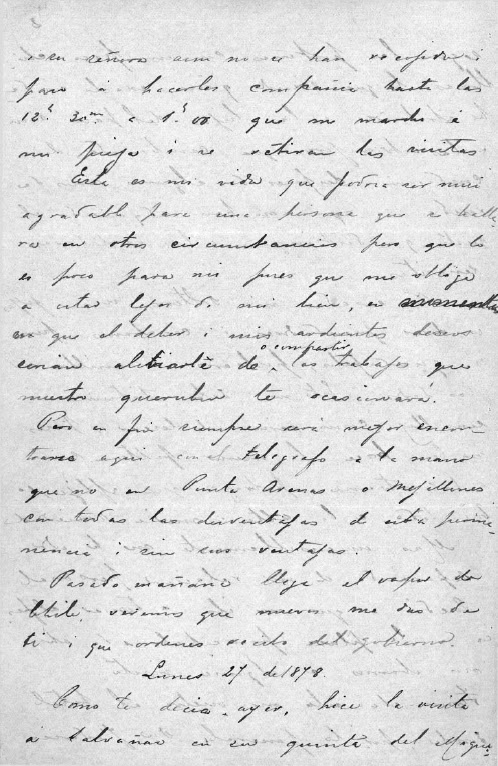 su señora aun no se han recojido i
paso a hacerles compañia hasta las
12h 30m a 1h 00 que me marcho a
mi pieza i se retiran las visitas
Esta es mi vida que podria ser mui
agradable para una persona que se halla-
ra en otras circunstancias pero que lo
es poco para mi pues que me obliga
a estar lejos de mi bien, en momentos
en que el deber i mis ardientes deseos
serian aliviarte de o compartir los trabajos que
nuestro querubin te ocasionará.
Pero en fin siempre será mejor encon-
trarse aqui con el telegrafo a la mano
que no en Punta Arenas o Mejillones
con todas las desventajas de esta perma-
nencia i sin sus ventajas.
Pasado mañana llega el vapor de
Chile, veremos que nuevas me das de
ti i que ordenes recibo del gobierno.
Lunes 27 de 1878.
Como te decia ayer, hice la visita
a en su quinta del